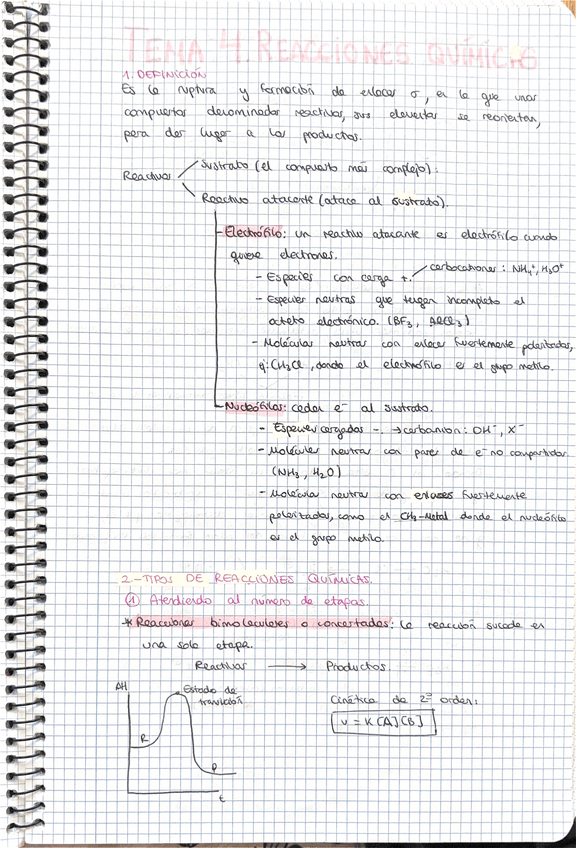 TEMA 4. REACCIONES QUÍMICAS
1. DEFINICIÓN
Es la ruptura y formación de enlaces σ, en la que unos
compuestos denominados reactivos, sus elementos se reorientan,
para dar lugar a los productos.
Sustrato (el compuesto más complejo).
Reactivos
Reactivo atacante (ataca al sustrato).
Electrófilo: un reactivo atacante es electrófilo cuando
quiere electrones.
- Especies con carga +. carbocationes: NH4+, H3O+
- Especies neutras que tengan incompleto el
octeto electrónico. (BF3, AlCl3)
- Moléculas neutras con enlaces fuertemente polarizados,
ej: CH3Cl, donde el electrófilo es el grupo metilo.
Nucleófilos: ceden e- al sustrato.
- Especies cargadas -. → carbanion: OH-, X-
- Moléculas neutras con pares de e- no compartidos
(NH3, H2O)
- Molécula neutra con enlaces fuertemente
polarizados, como el CH3-Metal donde el nucleófilo
es el grupo metilo.
2-TIPOS DE REACCIONES QUÍMICAS.
① Atendiendo al número de etapas.
* Reacciones bimoleculares o concertadas: la reacción sucede en
una sola etapa.
Reactivos → Productos.
ΔH
Estado de
transición
R
P
t
Cinética de 2º orden:
v = K[A][B]